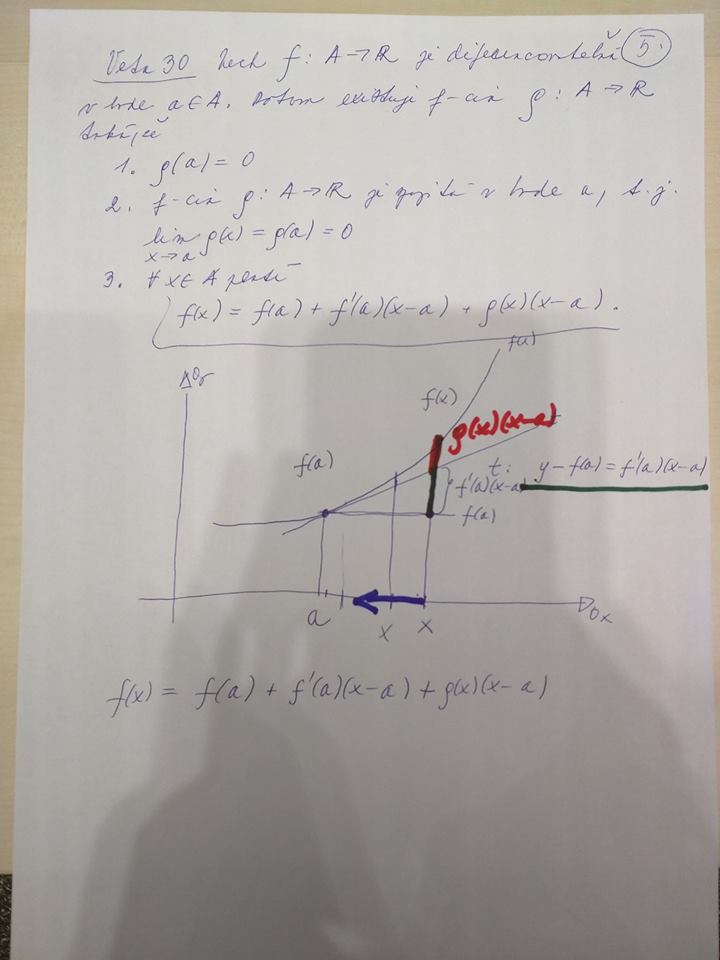 Veta 30 Nech f: A → R je diferencovateľná 5.
v bode a ∈ A. Potom existuje f-cia ρ: A → R
taká, že
1. ρ(a) = 0
2. f-cia ρ: A → R je spojitá v bode a, t.j.
lim ρ(x) = ρ(a) = 0
x→a
3. ∀x∈A platí
f(x) = f(a) + f'(a)(x-a) + ρ(x)(x-a).
f(x)
f(x)
ρ(x)(x-a)
f(a)
t: y - f(a) = f'(a)(x-a)
f'(a)(x-a)
f(a)
a x x
f(x) = f(a) + f'(a)(x-a) + ρ(x)(x-a)